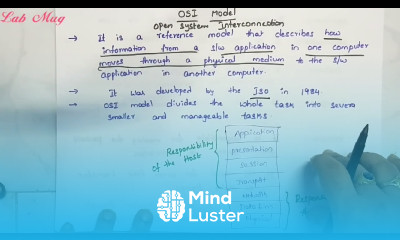 Lab Mag
OSI Model
open system Interconnection
→ It is a reference model that describes how
information from a s/w application in one computer
moves through a physical medium to the s/w
application in another computer.
→ It was developed by the ISO in 1984.
→ OSI model divides the whole task into seven
smaller and manageable tasks
Application
Responsibility
of the Host
presentation
session
transport
Mind
Luster